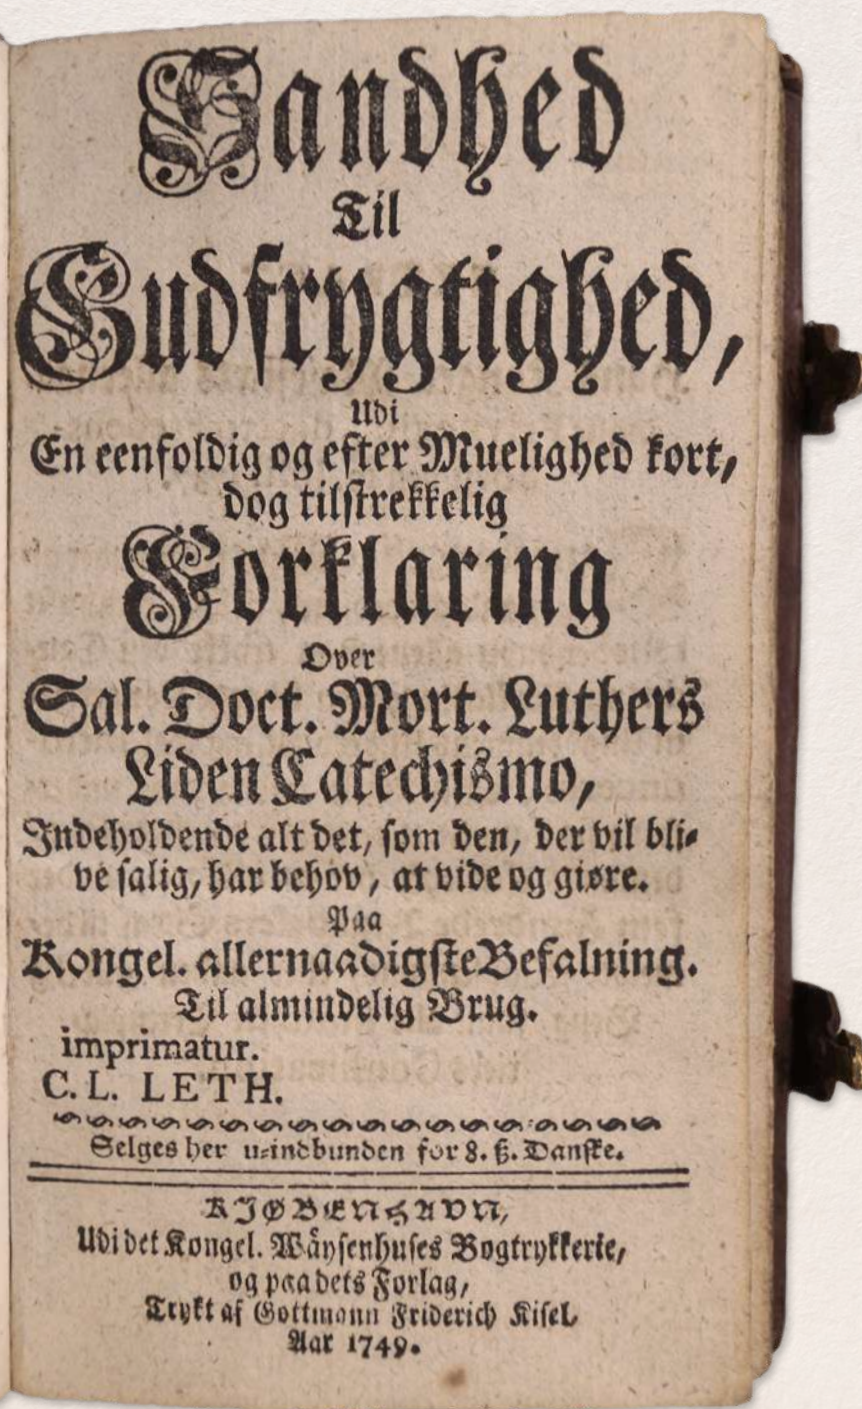 Sandhed
Til
Gudfrygtighed,
Udi
En eenfoldig og efter Muelighed kort,
dog tilstrekkelig
Forklaring
Over
Sal. Doct. Mort. Luthers
Liden Catechismo,
Indeholdende alt det, som den, der vil bli-
ve salig, har behov, at vide og giøre.
Paa
Kongel. allernaadigste Befalning.
Til almindelig Brug.
imprimatur.
C. L. LETH.
Selges her u-indbunden for 8. ß. Danske.
KJØBENHAVN,
Udi det Kongel. Wäysenhuses Bogtrykkerie,
og paa dets Forlag,
Trykt af Gottmann Friderich Kisel
Aar 1749.